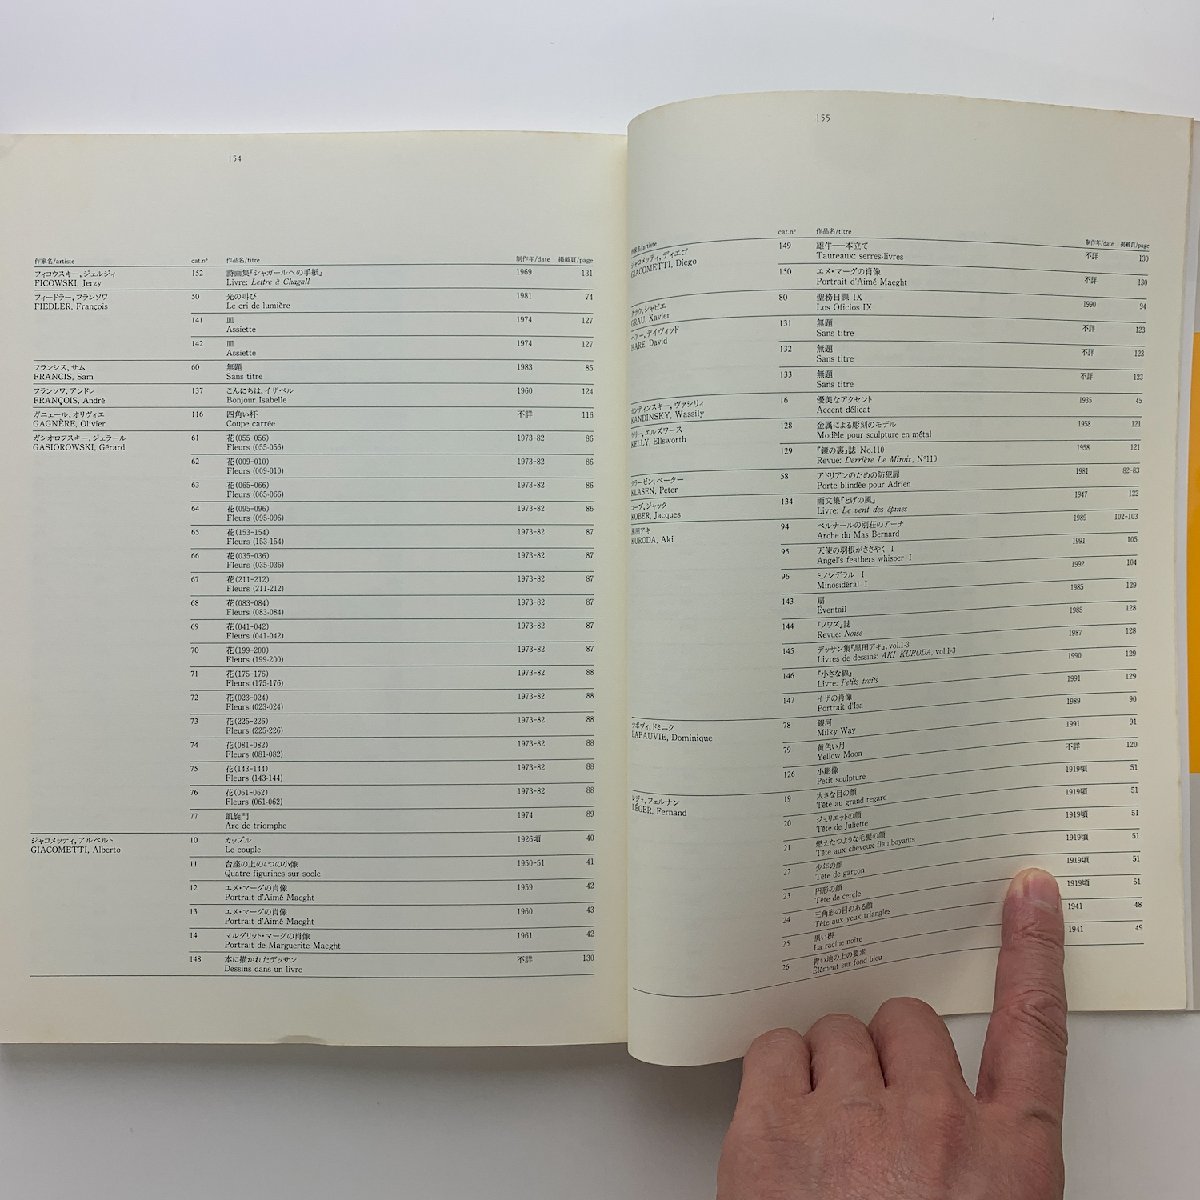 154
作家名/artiste cat.n° 作品名/titre 制作年/date 掲載頁/page
フィコウスキー, ジェルジィ 152 詩画集『シャガールへの手紙』 1969 131
FICOWSKI, Jerzy Livre: Lettre à Chagall
フィードラー, フランソワ 50 光の叫び 1981 74
FIEDLER, François Le cri de lumière
141 皿 1974 127
Assiette
142 皿 1974 127
Assiette
フランシス, サム 60 無題 1983 85
FRANCIS, Sam Sans titre
フランソワ, アンドレ 137 こんにちは, イザベル 1960 124
FRANÇOIS, André Bonjour Isabelle
ガニェール, オリヴィエ 116 四角い杯 不詳 116
GAGNÈRE, Olivier Coupe carrée
ガシオロフスキー, ジェラール 61 花(055-056) 1973-82 86
GASIOROWSKI, Gérard Fleurs (055-056)
62 花(009-010) 1973-82 86
Fleurs (009-010)
63 花(065-066) 1973-82 86
Fleurs (065-066)
64 花(095-096) 1973-82 86
Fleurs (095-096)
65 花(153-154) 1973-82 87
Fleurs (153-154)
66 花(035-036) 1973-82 87
Fleurs (035-036)
67 花(211-212) 1973-82 87
Fleurs (211-212)
68 花(083-084) 1973-82 87
Fleurs (083-084)
69 花(041-042) 1973-82 87
Fleurs (041-042)
70 花(199-200) 1973-82 87
Fleurs (199-200)
71 花(175-176) 1973-82 88
Fleurs (175-176)
72 花(023-024) 1973-82 88
Fleurs (023-024)
73 花(225-226) 1973-82 88
Fleurs (225-226)
74 花(081-082) 1973-82 88
Fleurs (081-082)
75 花(143-144) 1973-82 88
Fleurs (143-144)
76 花(061-062) 1973-82 88
Fleurs (061-062)
77 凱旋門 1974 89
Arc de triomphe
ジャコメッティ, アルベルト 10 カップル 1926頃 40
GIACOMETTI, Alberto Le couple
11 台座の上の4つの小像 1950-51 41
Quatre figurines sur socle
12 エメ・マーグの肖像 1959 42
Portrait d'Aimé Maeght
13 エメ・マーグの肖像 1960 43
Portrait d'Aimé Maeght
14 マルグリット・マーグの肖像 1961 42
Portrait de Marguerite Maeght
148 本に描かれたデッサン 不詳 130
Dessins dans un livre
155
作家名/artiste cat.n° 作品名/titre 制作年/date 掲載頁/page
ジャコメッティ, ディエゴ 149 雄牛―本立て 不詳 130
GIACOMETTI, Diego Taureaux serres-livres
150 エメ・マーグの肖像 不詳 130
Portrait d'Aimé Maeght
グラウ, シャビエ 80 聖務日課 IX 1990 94
GRAU, Xavier Los Oficios IX
ヘアー, デイヴィッド 131 無題 不詳 123
HARE, David Sans titre
132 無題 不詳 123
Sans titre
133 無題 不詳 123
Sans titre
カンディンスキー, ヴァシリィ 16 優美なアクセント 1935 45
KANDINSKY, Wassily Accent délicat
ケリー, エルズワース 128 金属による彫刻のモデル 1958 121
KELLY, Ellsworth Modèle pour sculpture en métal
129 『鏡の裏』誌 No.110 1958 121
Revue: Derrière Le Miroir, N°110
クラーゼン, ペーター 58 アドリアンのための防犯扉 1981 82-83
KLASEN, Peter Porte blindée pour Adrien
コーブ, ジャック 134 画文集『とげの風』 1947 123
KOBER, Jacques Livre: Le vent des épines
黒田アキ 94 ベルナールの別荘のアーチ 1986 102-103
KURODA, Aki Arche du Mas Bernard
95 天使の羽根がささやく I 1991 105
Angel's feathers whisper I
96 ミノシデラル I 1992 104
Minosidéral I
143 扇 1985 129
Éventail
144 『ノワズ』誌 1985 128
Revue: Noise
145 デッサン集『黒田アキ』, vol.1-3 1987 128
Livres de dessins: AKI KURODA, vol.1-3
146 『小さな個』 1990 129
Livre:
147 イザの肖像 1991 129
Portrait d'Isa
ラポヴィ, ドミニク 78 銀河 1989 90
LAPAUVIE, Dominique Milky Way
79 黄笑い月 1991 91
Yellow Moon
126 小彫像 不詳 120
Petit sculpture
レジェ, フェルナン 19 大きな目の顔 1919頃 51
LÉGER, Fernand Tête au grand regard
20 ジュリエットの顔 1919頃 51
Tête de Juliette
21 燃えたつような毛髪の顔 1919頃 51
Tête aux cheveux flamboyants
22 少年の顔 1919頃 51
Tête de garçon
23 円形の顔 1919頃 51
Tête de cercle
24 三角形の目のある顔 1919頃 51
Tête aux yeux triangles
25 黒い根 1941 48
La racine noire
26 青い地の上の要素 1941 49
Élément sur fond bleu